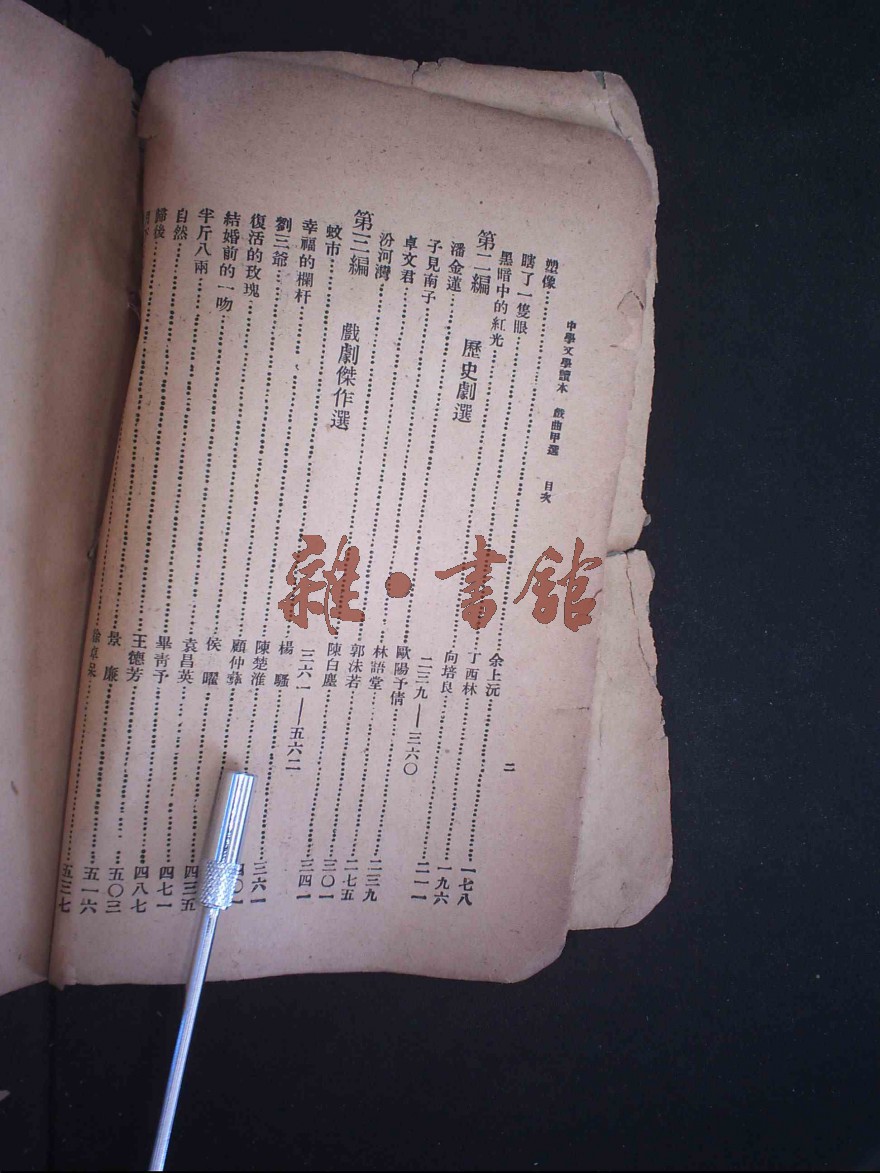 中學文學讀本　戲曲甲選　目次　二
塑像……余上沅……一七八
瞎了一隻眼……丁西林……一九六
黑暗中的紅光……向培良……二一一
第二編　歷史劇選　二三九——三六〇
潘金蓮……歐陽予倩……二三九
子見南子……林語堂……二七五
卓文君……郭沫若……三〇一
汾河灣……陳白塵……三四一
第三編　戲劇傑作選　三六一——五六二
蚊市……楊騷……三六一
幸福的欄杆……陳楚淮……四〇一
劉三爺……顧仲彝……
復活的玫瑰……侯曜……四三五
結婚前的一吻……袁昌英……四七一
半斤八兩……畢青予……四八七
自然……王德芳……五〇三
歸後……景廉……五一六
……徐卓呆……五三七
雜·書館